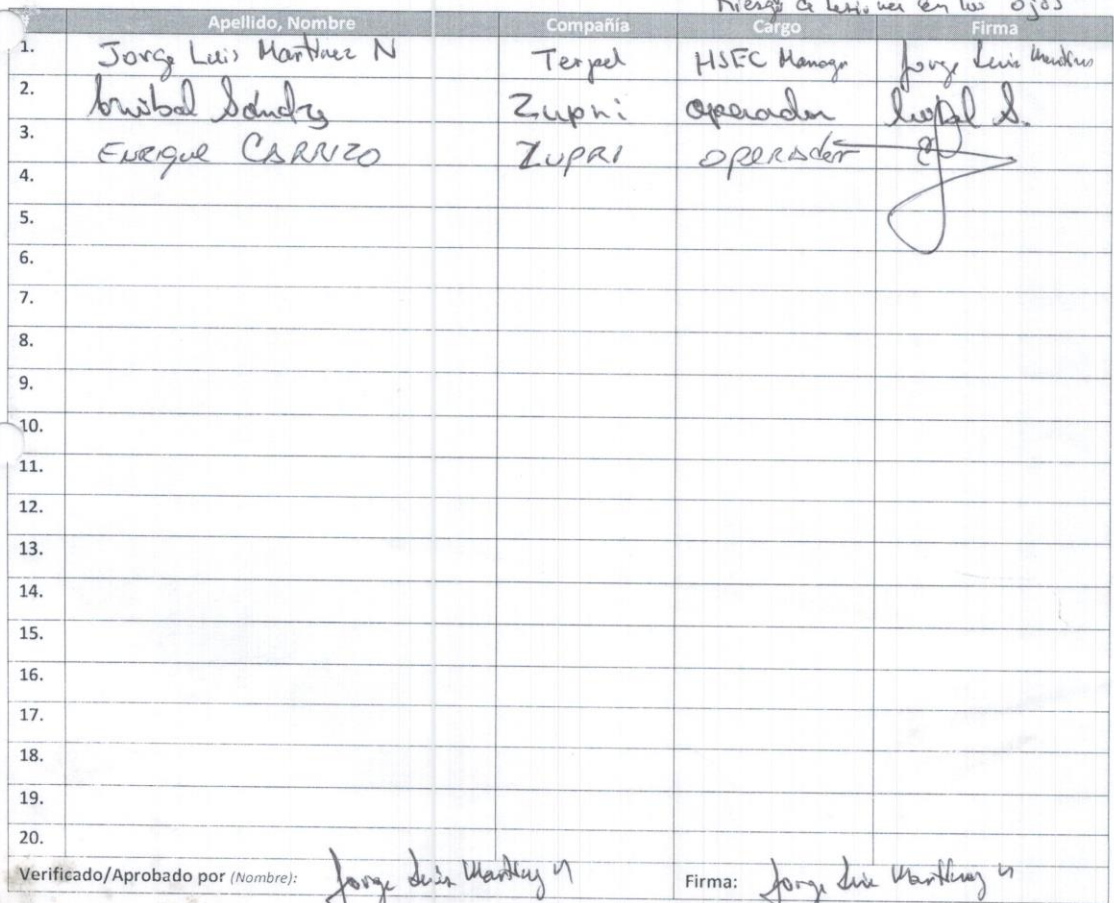 Riesgo de Lesiones en los ojos
Apellido, Nombre Compañía Cargo Firma
1. Jorge Luis Martinez N Terpel HSEC Manager Jorge Luis Martinez
2. Anibal Sandz Zupri operador Anibal S.
3. Enrique CARRIZO ZUPRI operador
4.
5.
6.
7.
8.
9.
10.
11.
12.
13.
14.
15.
16.
17.
18.
19.
20.
Verificado/Aprobado por (Nombre): Jorge Luis Martinez N Firma: Jorge Luis Martinez N